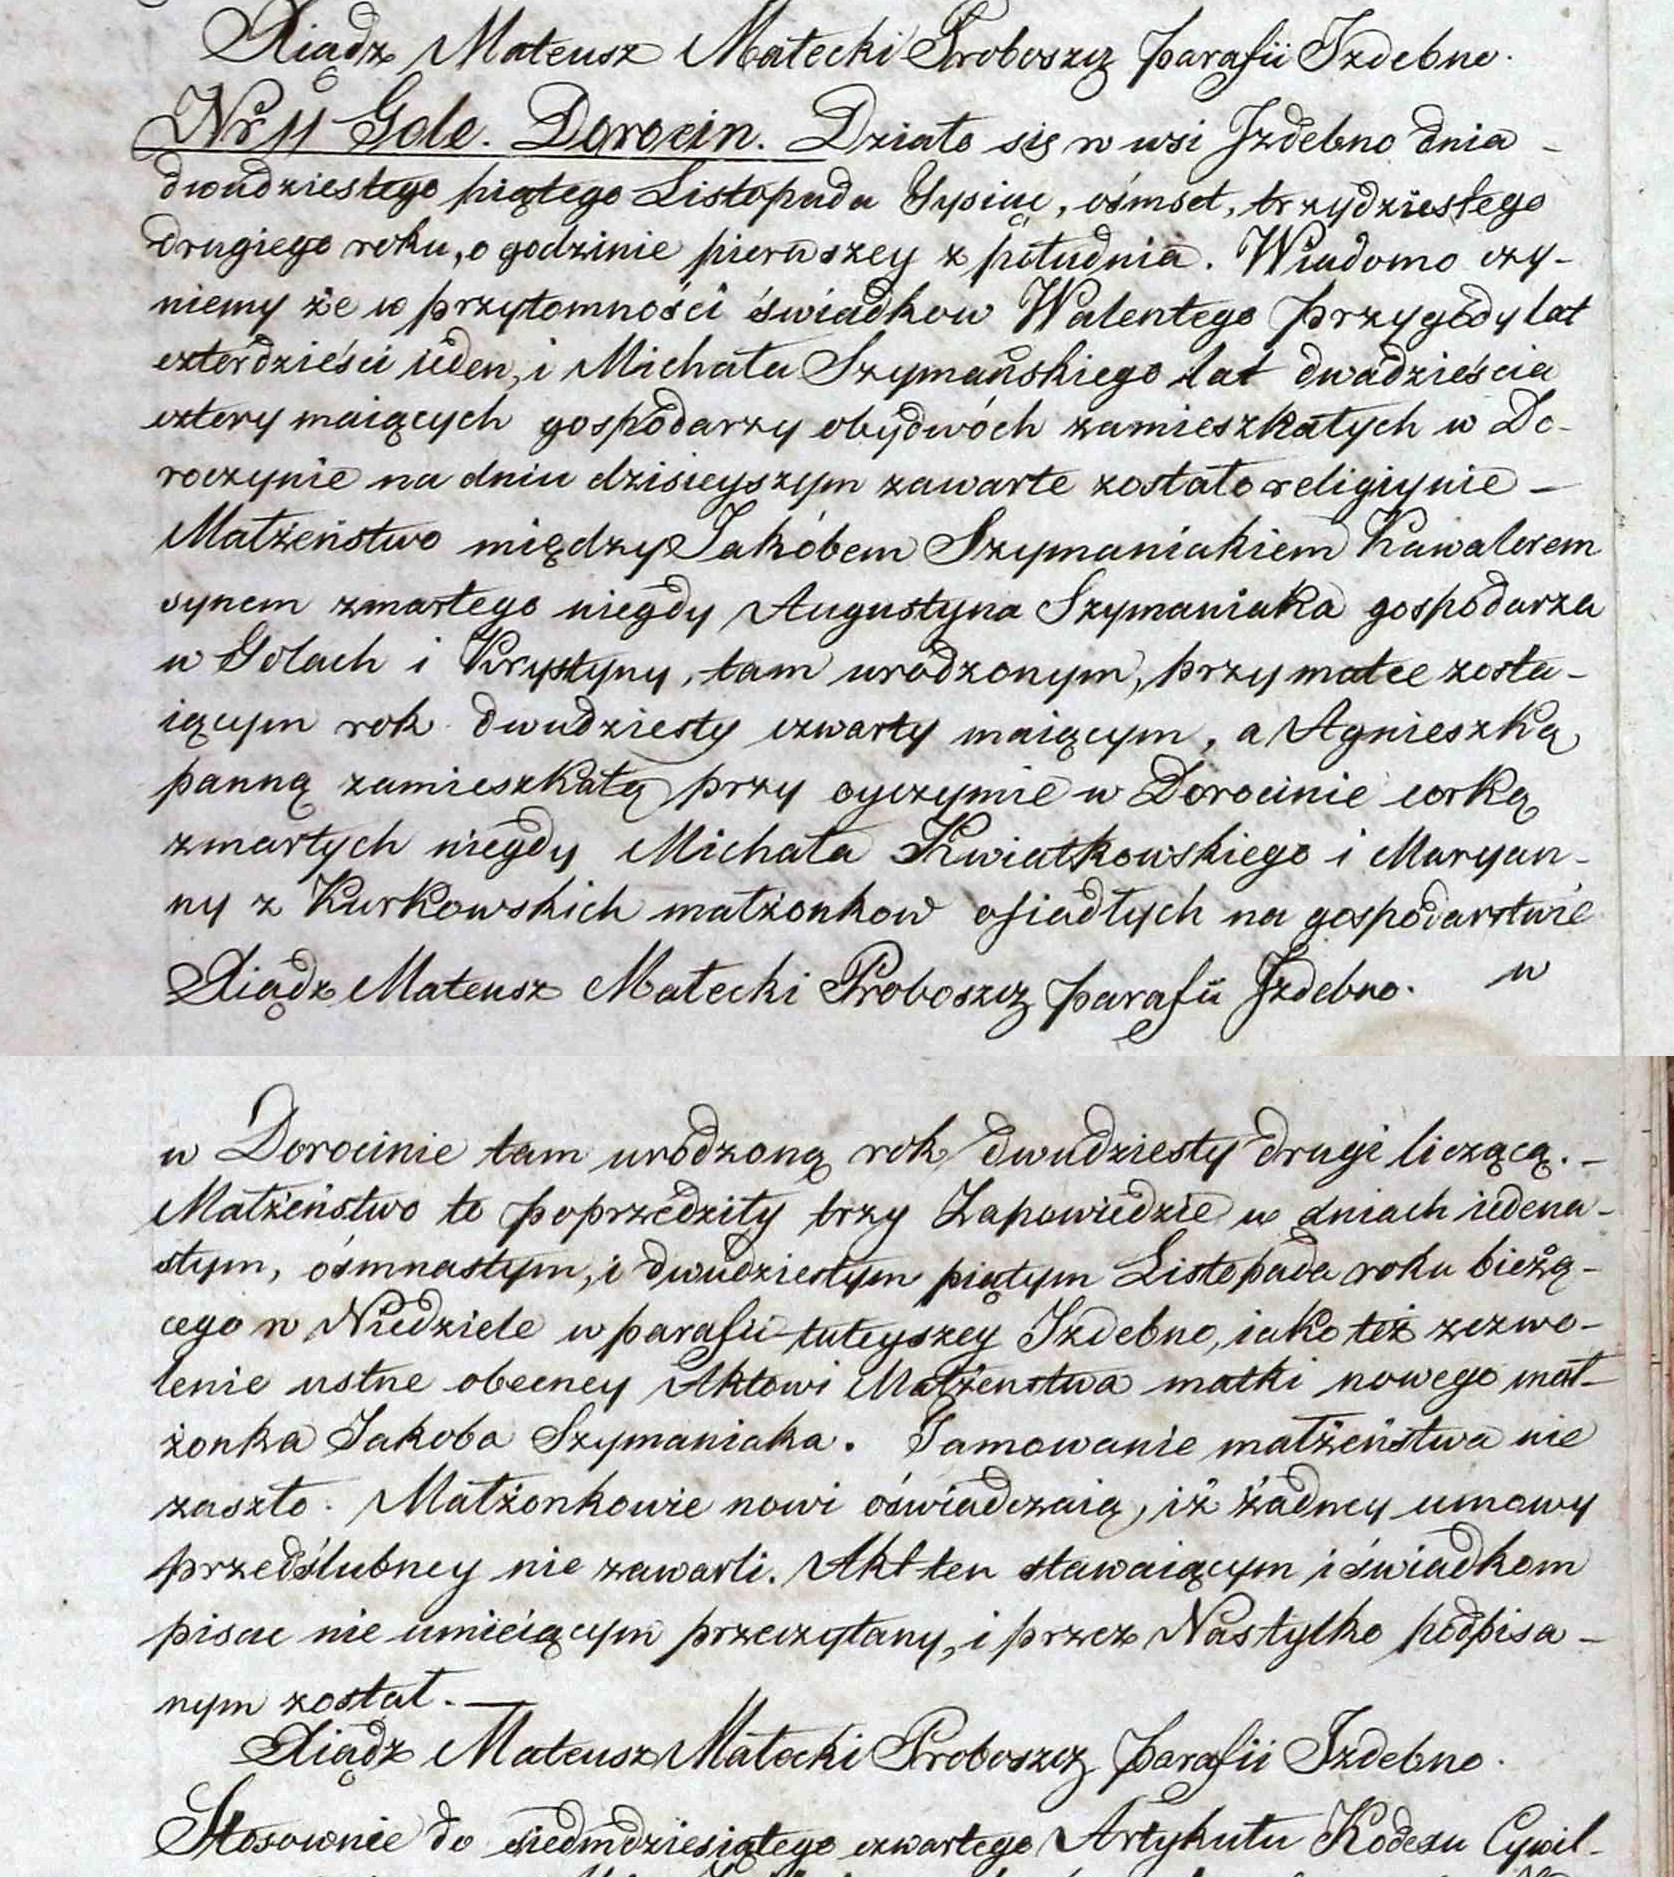 Xiądz Mateusz Małecki Proboszcz parafii Izdebno.
Nr 11 Gole. Dorocin. Działo się w wsi Izdebno dnia -
dwudziestego piątego Listopada Tysiąc, ośmset, trzydziestego
drugiego roku, o godzinie pierwszey z południa. Wiadomo czy-
niemy że w przytomności świadkow Walentego Przygody lat
czterdzieści ieden, i Michała Szymańskiego lat dwadzieścia
cztery maiących gospodarzy obydwóch zamieszkałych w Do-
roczynie na dniu dzisieyszym zawarte zostało religiynie -
Małżeństwo między Jakóbem Szymaniakiem Kawalerem
synem zmarłego niegdy Augustyna Szymaniaka gospodarza
w Golach i Krystyny, tam urodzonym, przy matce zosta-
iącym rok dwudziesty czwarty maiącym, a Agnieszką
panną zamieszkałą przy oyczymie w Dorocinie corką
zmarłych niegdy Michała Kwiatkowskiego i Maryan-
ny z Kurkowskich małżonkow osiadłych na gospodarstwie
Xiądz Mateusz Małecki Proboszcz parafii Izdebno. w
w Dorocinie tam urodzoną rok dwudziesty drugi liczącą. -
Małżeństwo to poprzedziły trzy Zapowiedzie w dniach iedena-
stym, ósmnastym, i dwudziestym piątym Listopada roku bieżą-
cego w Niedziele w parafii tuteyszey Izdebno, iako też zezwo-
lenie ustne obecney Aktowi Małżeństwa matki nowego mał-
żonka Jakoba Szymaniaka. Tamowanie małżeństwa nie
zaszło. Małżonkowie nowi oświadczaią, iż żadney umowy
przedślubney nie zawarli. Akt ten stawaiącym i świadkom
pisac nie umieiącym przeczytany, i przez Nas tylko podpisa-
nym został. -
Xiądz Mateusz Małecki Proboszcz parafii Izdebno.
Stosownie do siedmdziesiątego czwartego Artykułu Kodexu Cywil-